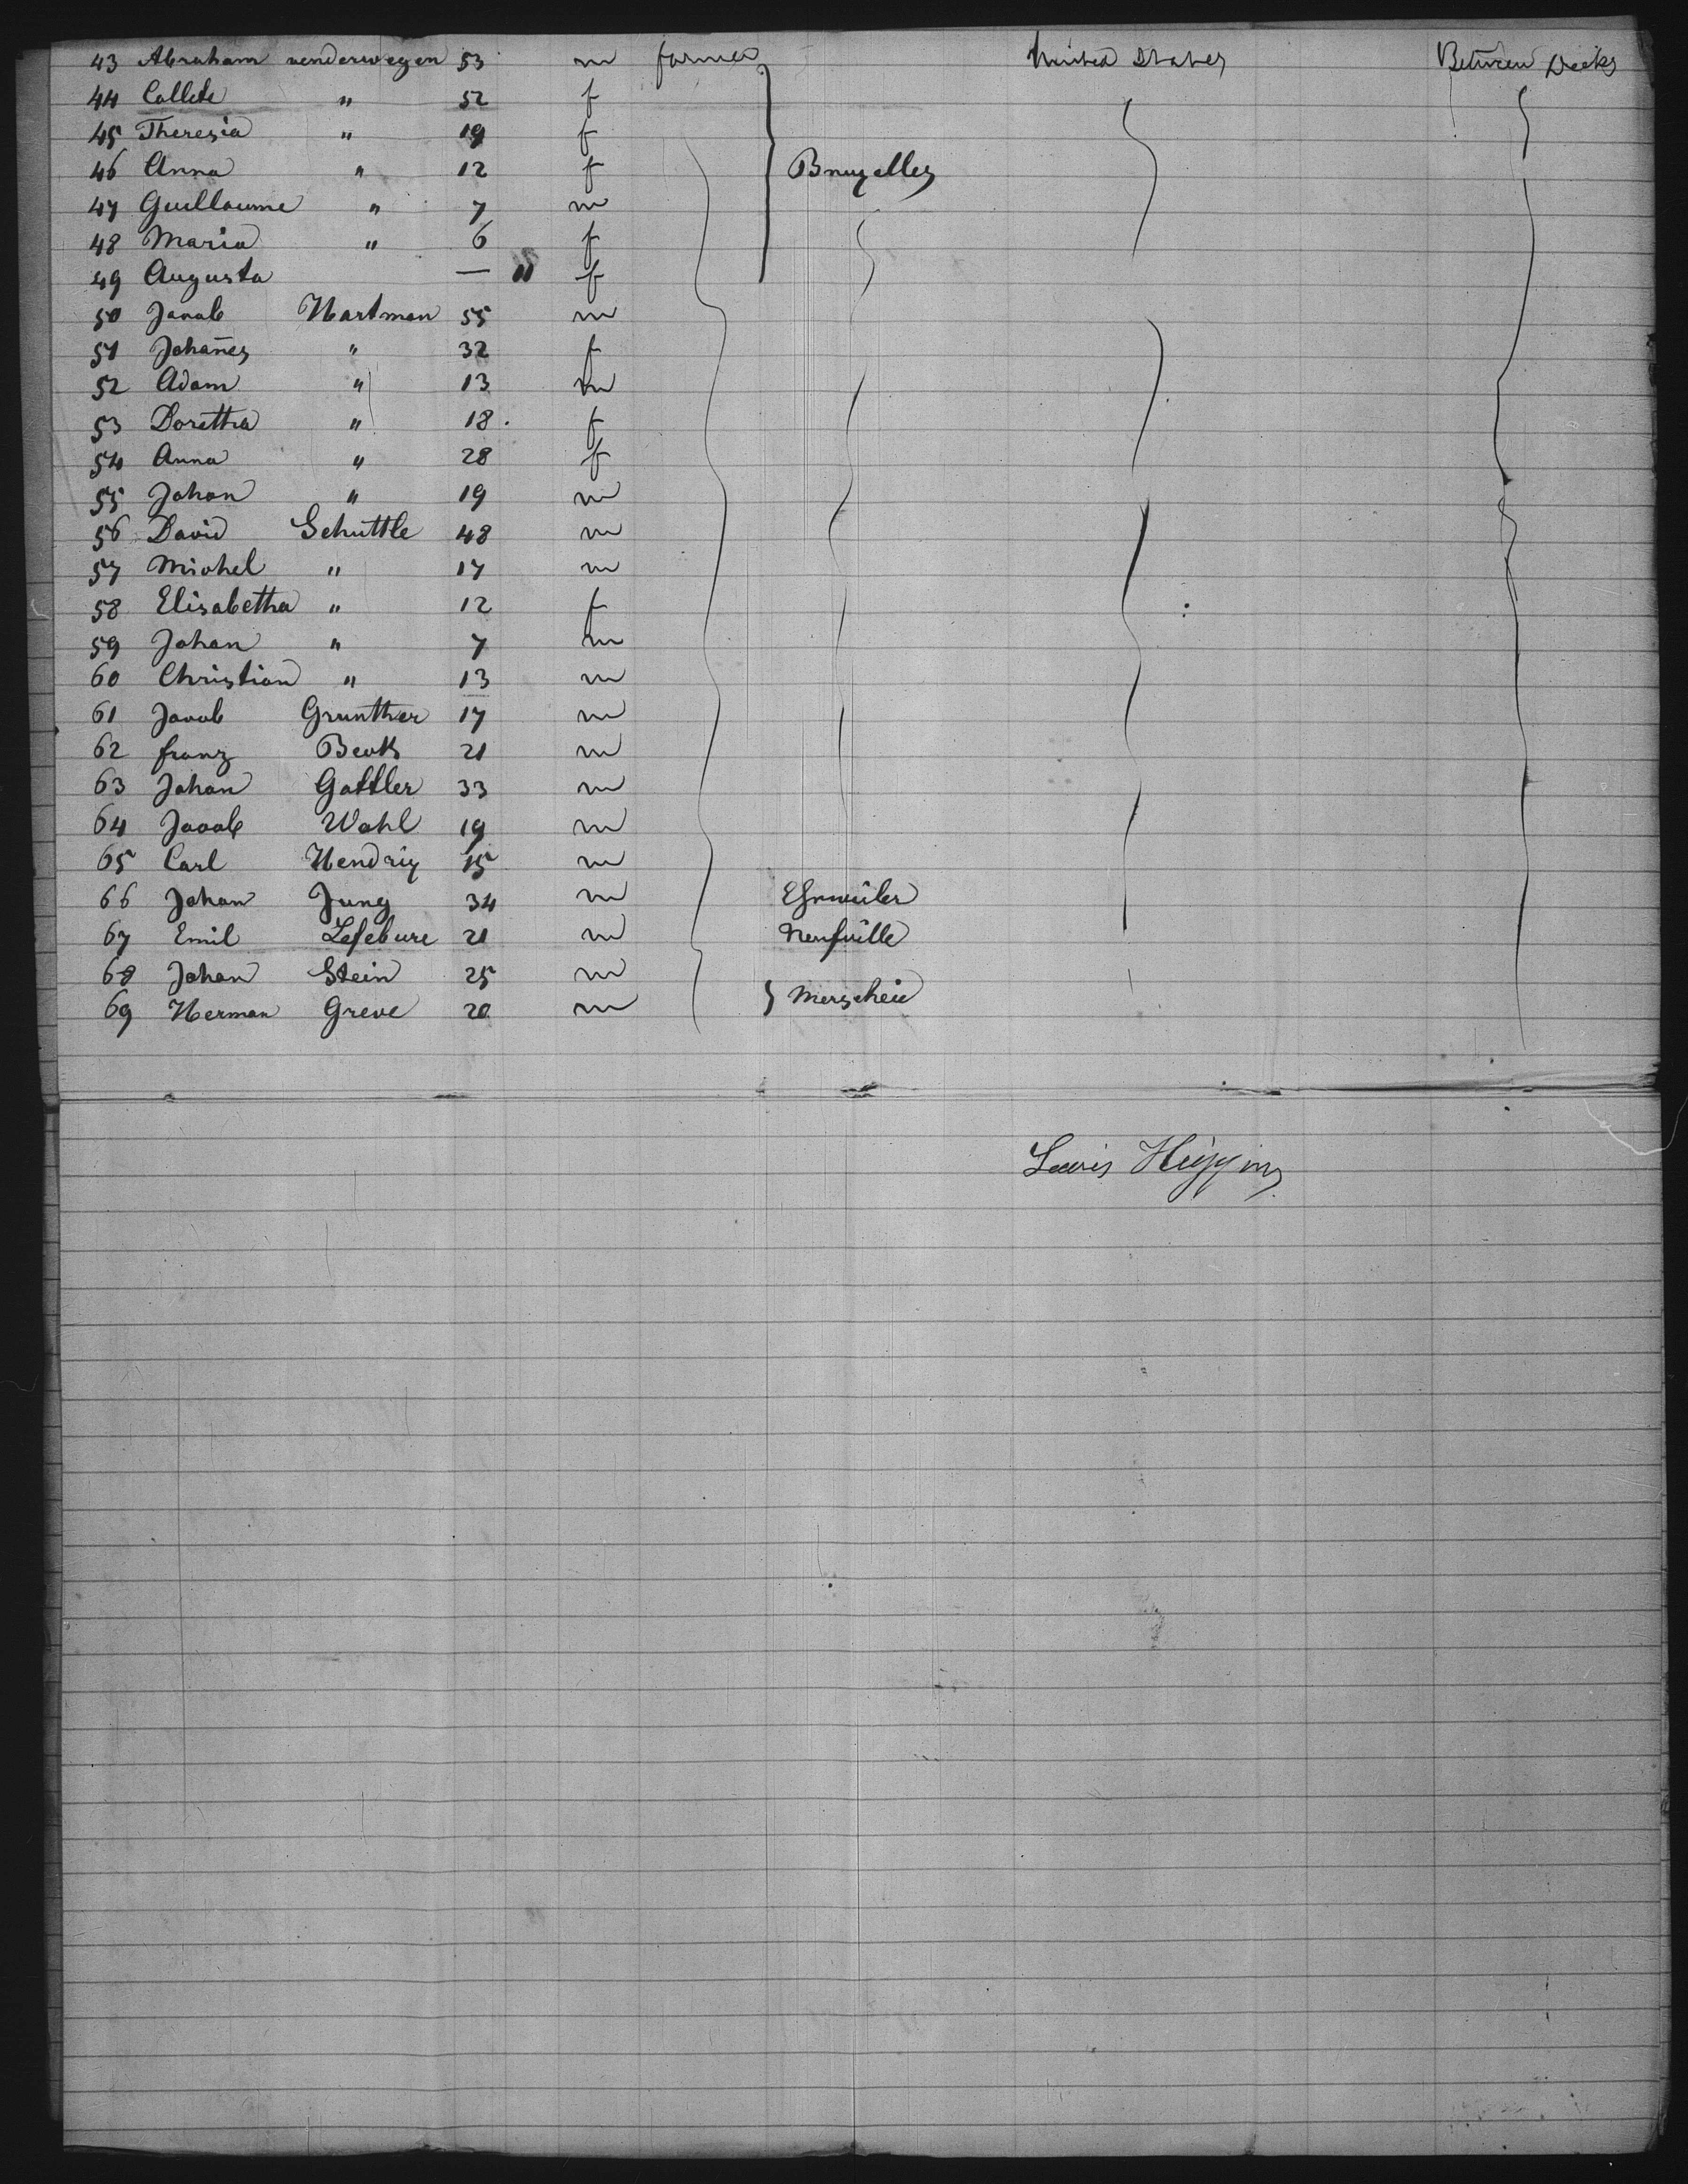 43 Abraham venderwegen 53 m farmer United States Between Decks
44 Collete " 52 f
45 Theresia " 19 f
46 Anna " 12 f Bruxelles
47 Guillaume " 7 m
48 Maria " 6 f
49 Augusta — " f
50 Jacob Hartman 55 m
51 Johañes " 32 f
52 Adam " 13 m
53 Doretha " 18 f
54 Anna " 28 f
55 Johan " 19 m
56 David Schuttle 48 m
57 Michel " 17 m
58 Elisabetha " 12 f
59 Johan " 7 m
60 Christian " 13 m
61 Jacob Grunther 17 m
62 franz Beck 21 m
63 Johan Gattler 33 m
64 Jacob Wahl 19 m
65 Carl Hendrix 15 m
66 Johan Jung 34 m
67 Emil Lefebure 21 m Neufville
68 Johan Stein 25 m
69 Herman Greve 20 m Merscheid
Louis